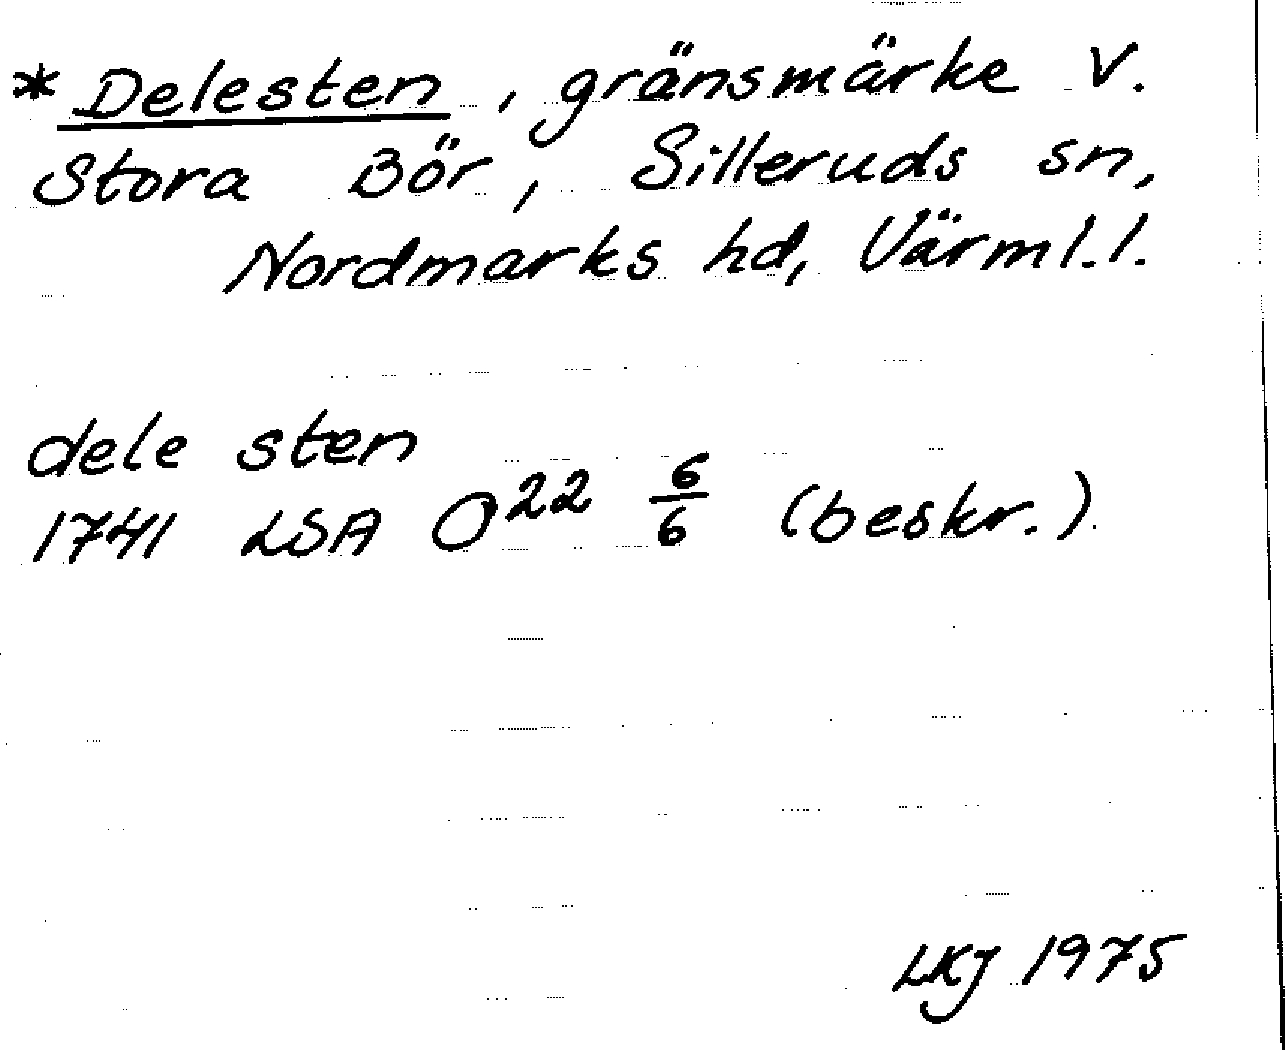 *Delesten, gränsmärke V.
Stora Bör, Silleruds sn,
Nordmarks hd, Värml.l.
dele sten
1741 LSA O22 6/6 (beskr.)
LKJ 1975